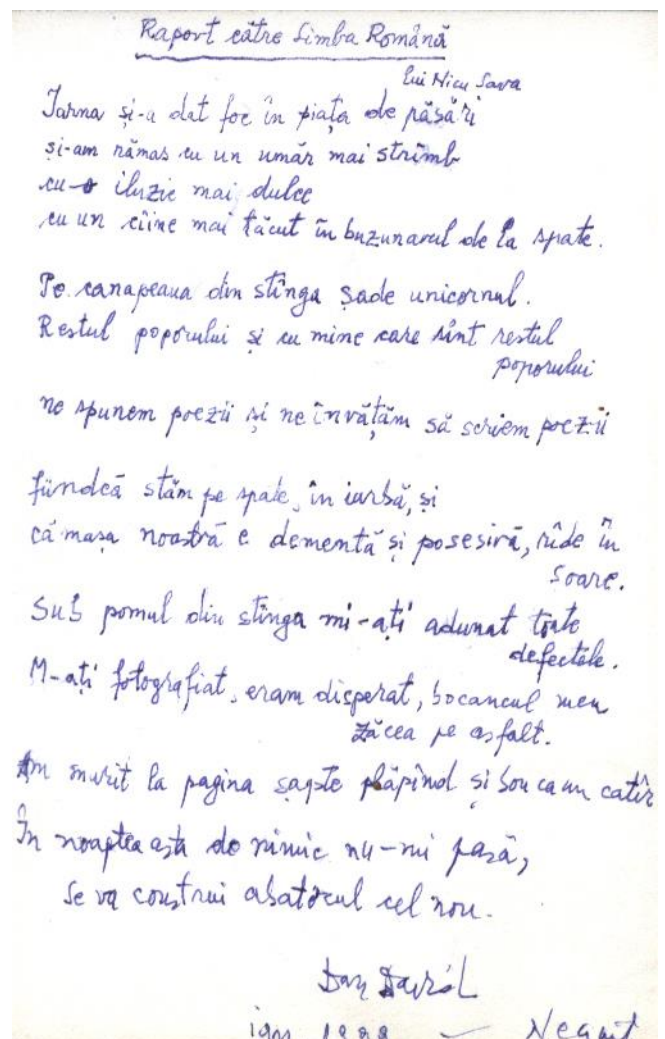 Raport către Limba Română
lui Nicu Sava
Iarna și-a dat foc în piața de păsări
și-am rămas cu un umăr mai strîmb
cu o iluzie mai dulce
cu un cîine mai tăcut în buzunarul de la spate.
Pe canapeaua din stînga șade unicornul.
Restul poporului și cu mine care sînt restul
poporului
ne spunem poezii și ne învățăm să scriem poezii
fiindcă stăm pe spate, în iarbă, și
că masa noastră e dementă și posesivă, rîde în
soare.
Sub pomul din stînga mi-ați adunat toate
defectele.
M-ați fotografiat, eram disperat, bocancul meu
zăcea pe asfalt.
Am murit la pagina șapte plăpînd și bou ca un catîr
În noaptea asta de nimic nu-mi pasă,
se va construi abatorul cel nou.
Dan David
Neamț